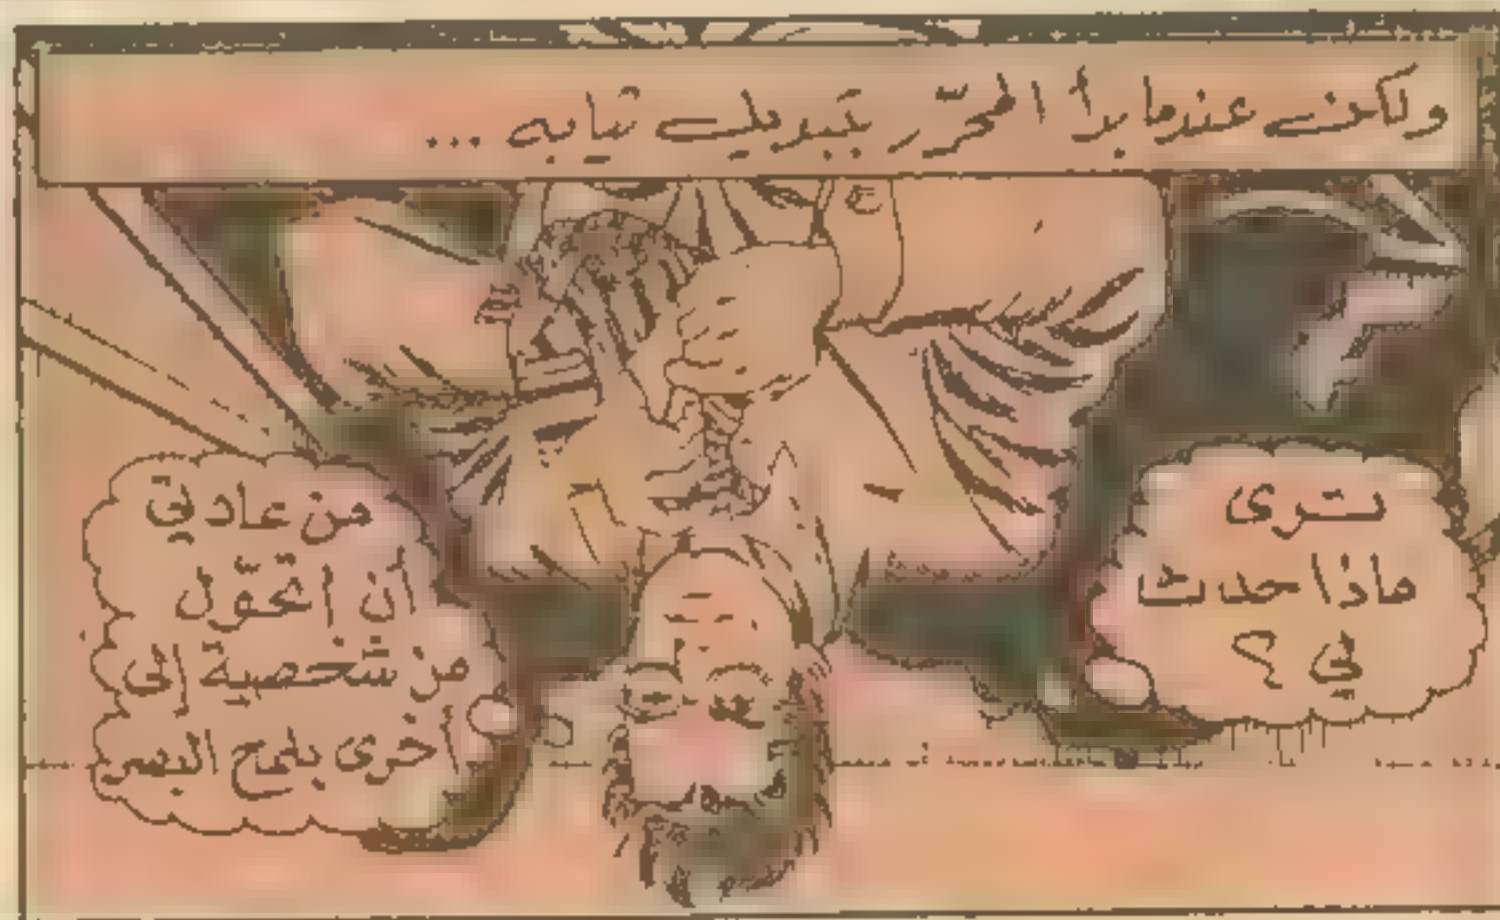 ولكن عندما بدأ المحرّر بتبديل ثيابه ...
تـرى
ماذا حدث
لي ؟
من عادتي
أن أتحوّل
من شخصية إلى
أخرى بلمح البصر